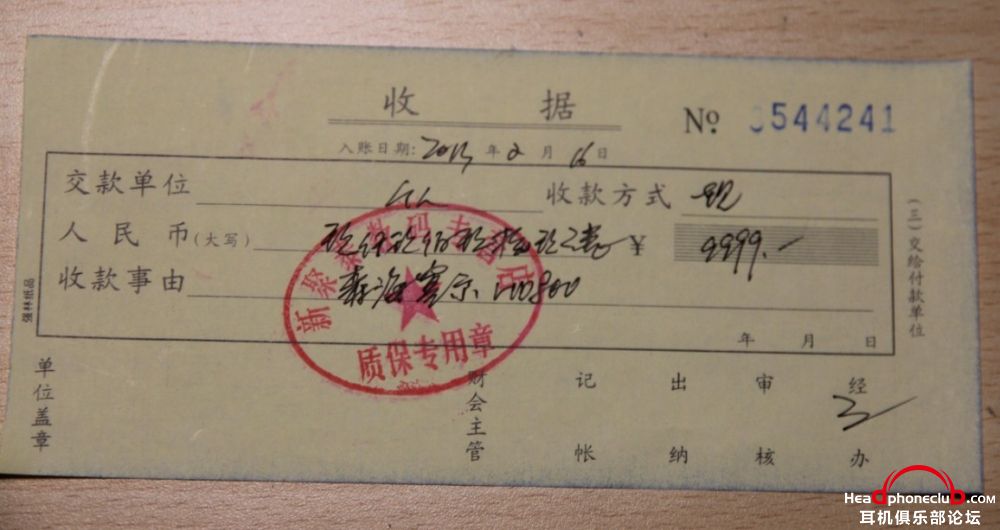 收 据
No 544241
入账日期: 2013 年 2 月 16 日
交款单位 个人 收款方式 现
人民币(大写) 玖仟玖佰玖拾玖元整 ¥ 9999.-
收款事由 森海塞尔 HD800
年 月 日
(三)交给付款单位
强林纸品
单位盖章
财会主管
记帐
出纳
审核
经办
质保专用章
HeadphoneClub.com
耳机俱乐部论坛